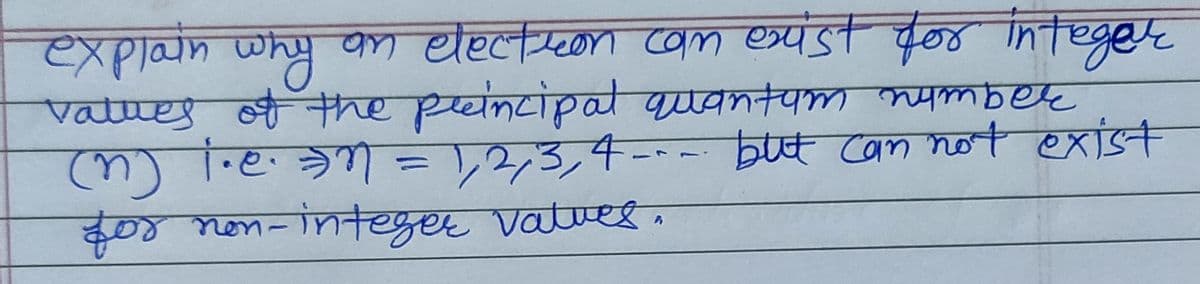 explain why an electron can exist for integer
values of the principal quantum number
(n) i.e. ⇒ n = 1,2,3,4---- but can not exist
for non-integer values.